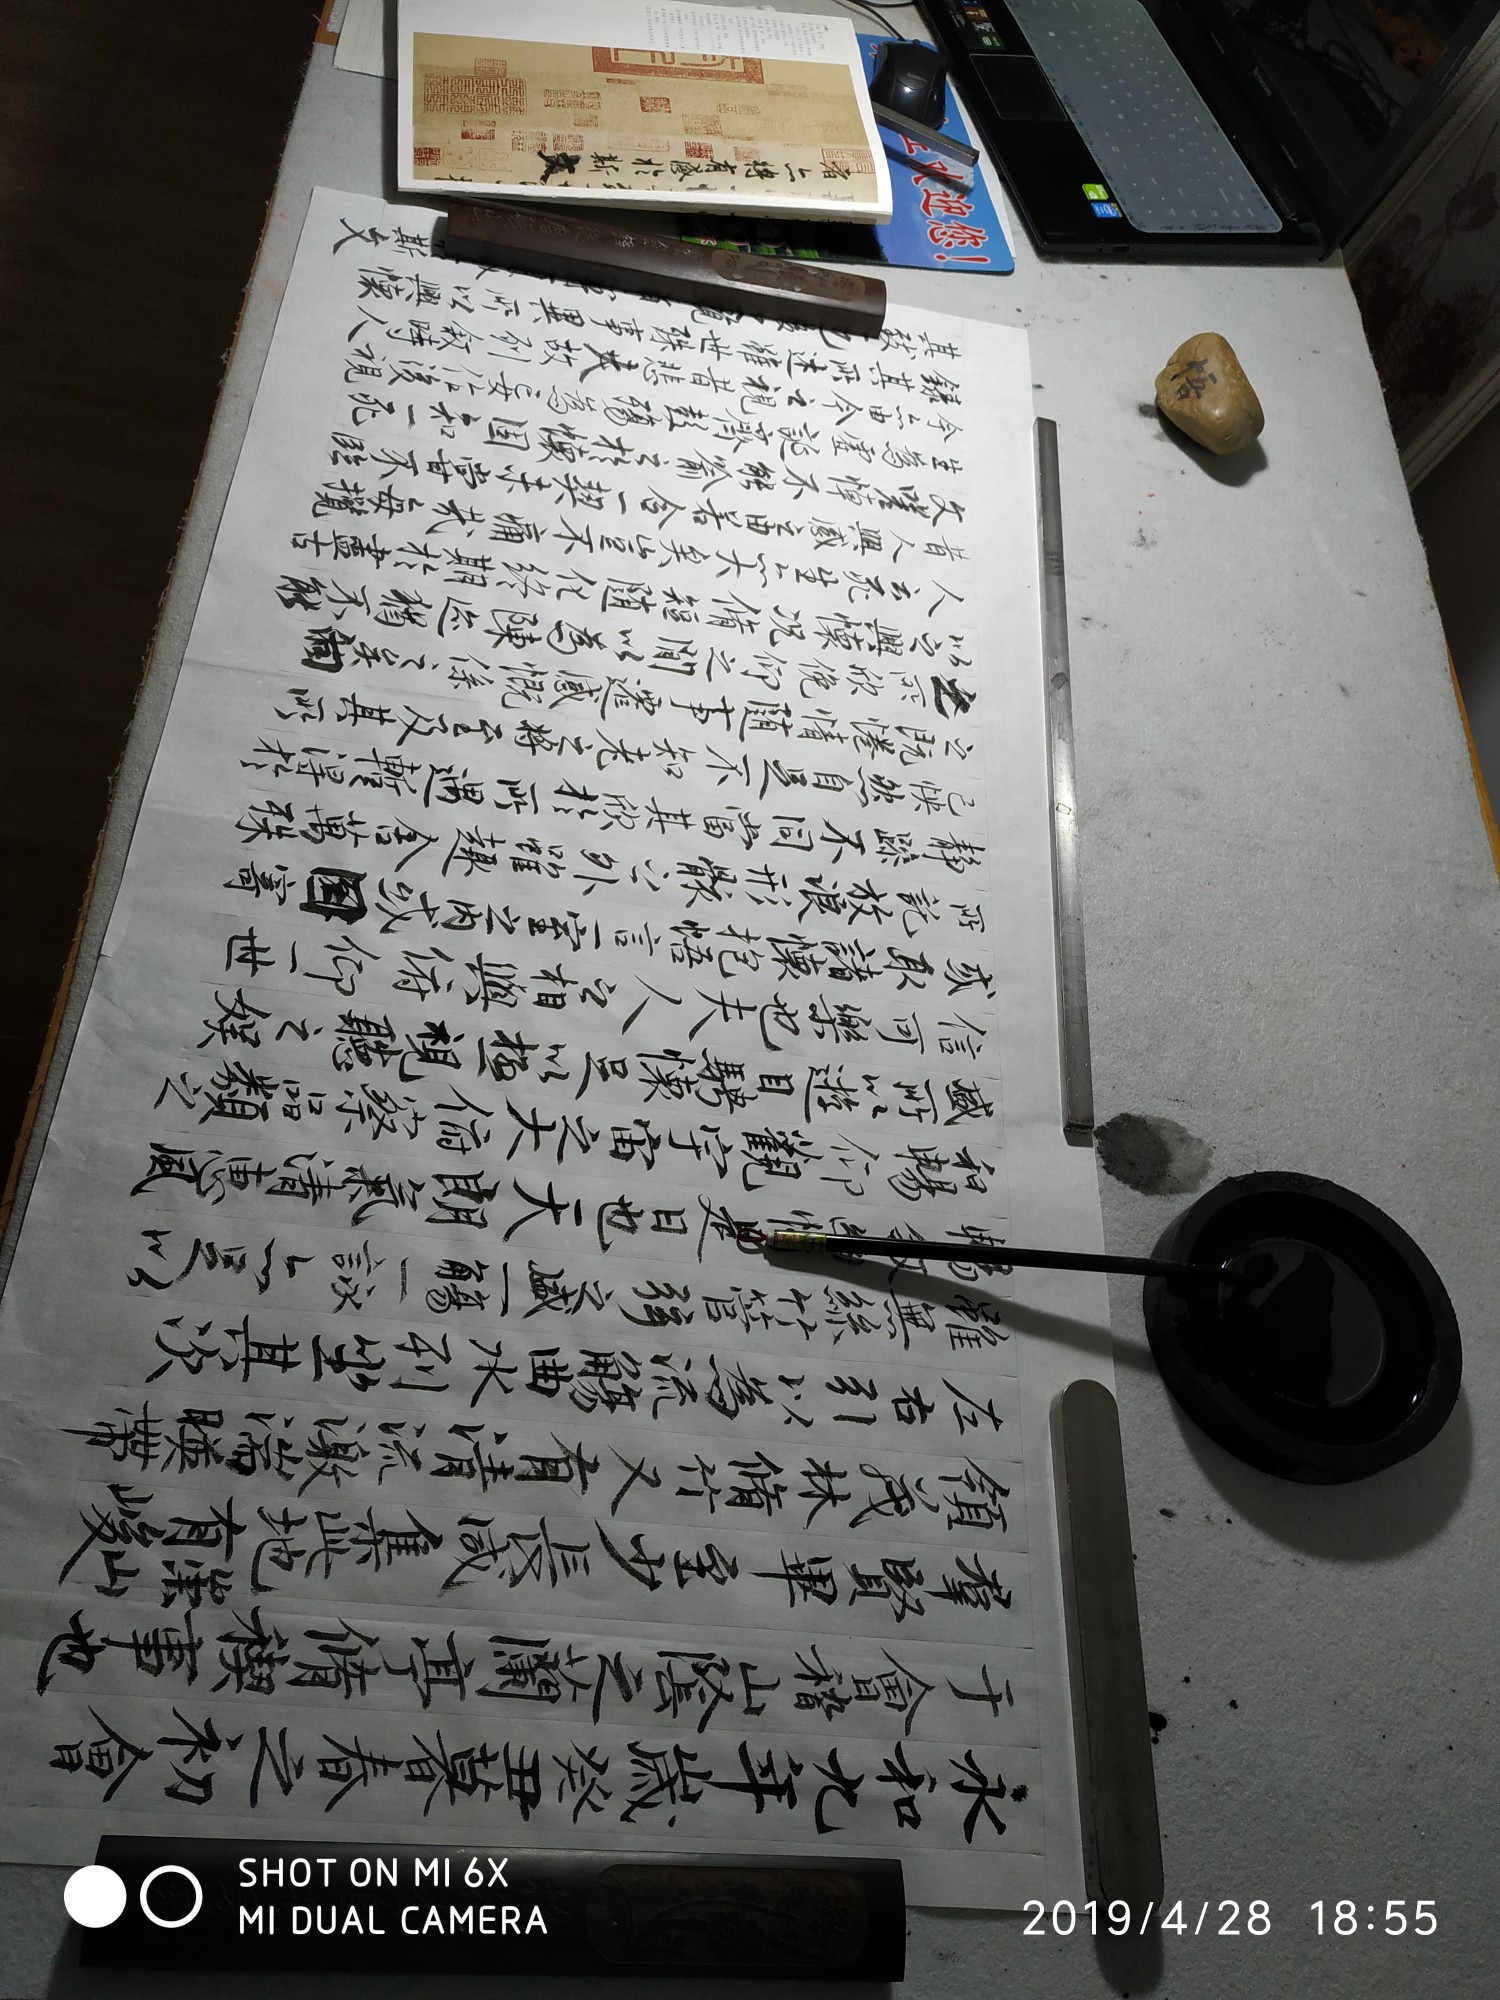 永和九年歲癸丑暮春之初會
于會稽山陰之蘭亭脩禊事也
羣賢畢至少長咸集此地有崇山峻
領茂林脩竹又有清流激湍暎帶
左右引以為流觴曲水列坐其次
雖無絲竹管弦之盛一觴一詠亦足以
暢叙情是日也天朗氣清惠風
和暢仰觀宇宙之大俯察品類之
盛所以遊目騁懷足以極視聽之娛
信可樂也夫人之相與俯仰一世
或取諸懷抱悟言一室之內或因寄
所託放浪形骸之外雖趣舍萬殊
靜躁不同當其欣於所遇暫得於
己怏然自足不知老之將至及其所
之既惓情隨事遷感慨係之矣向
之所欣俛仰之閒以為陳迹猶不能
以之興懷況脩短隨化終期於盡古
人云死生亦大矣豈不痛哉每攬
昔人興感之由若合一契未嘗不臨
文嗟悼不能喻之於懷固知一死
生為虛誕齊彭殤為妄作後視
今亦由今之視昔悲夫故列敘時人
錄其所述雖世殊事異所以興懷
其致也
斯文
者亦將有感於斯文
欢迎您！
悟
SHOT ON MI 6X
MI DUAL CAMERA
2019/4/28 18:55